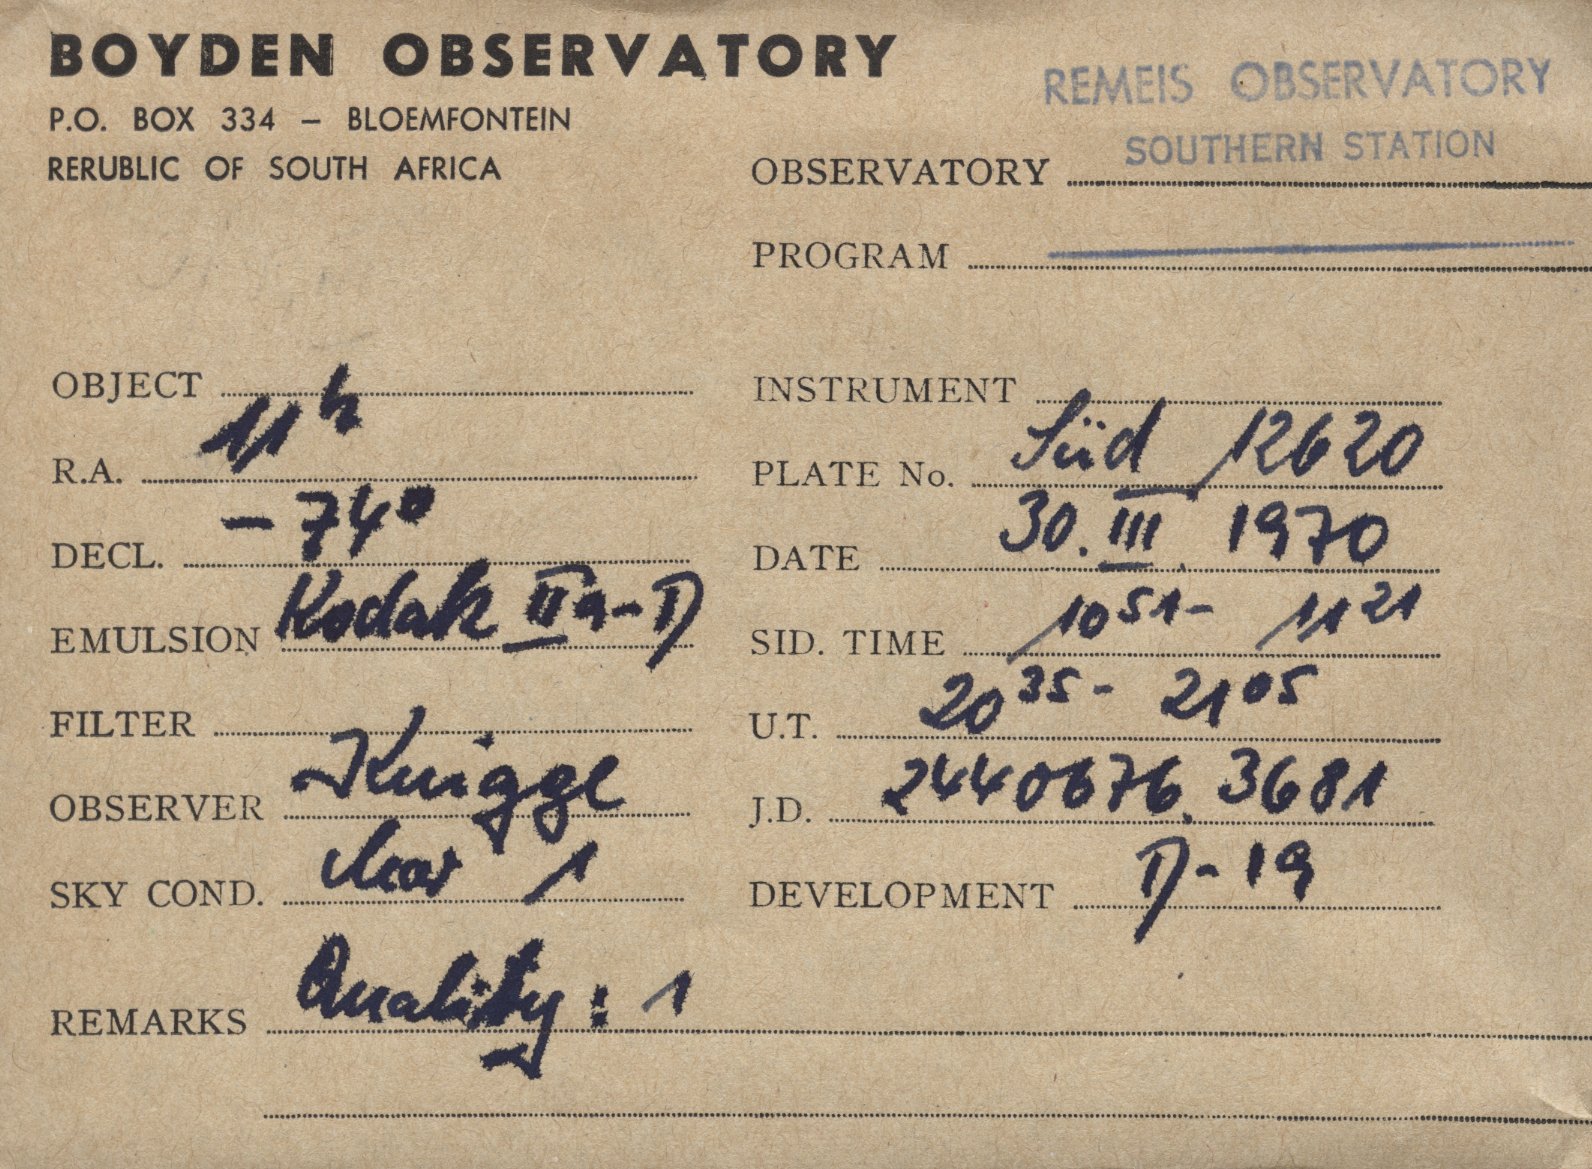 BOYDEN OBSERVATORY
P.O. BOX 334 – BLOEMFONTEIN
RERUBLIC OF SOUTH AFRICA
REMEIS OBSERVATORY
SOUTHERN STATION
OBSERVATORY
PROGRAM
OBJECT
INSTRUMENT
R.A. 11h
PLATE No. Süd 12620
DECL. -74°
DATE 30. III. 1970
EMULSION Kodak IIa-D
SID. TIME 10 51 - 11 21
FILTER
U.T. 20 35 - 21 05
OBSERVER Knigge
J.D. 2440676.3681
SKY COND. clear 1
DEVELOPMENT D-19
REMARKS Quality: 1